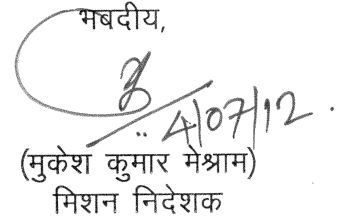 भवदीय,
4/07/12.
(मुकेश कुमार मेश्राम)
मिशन निदेशक